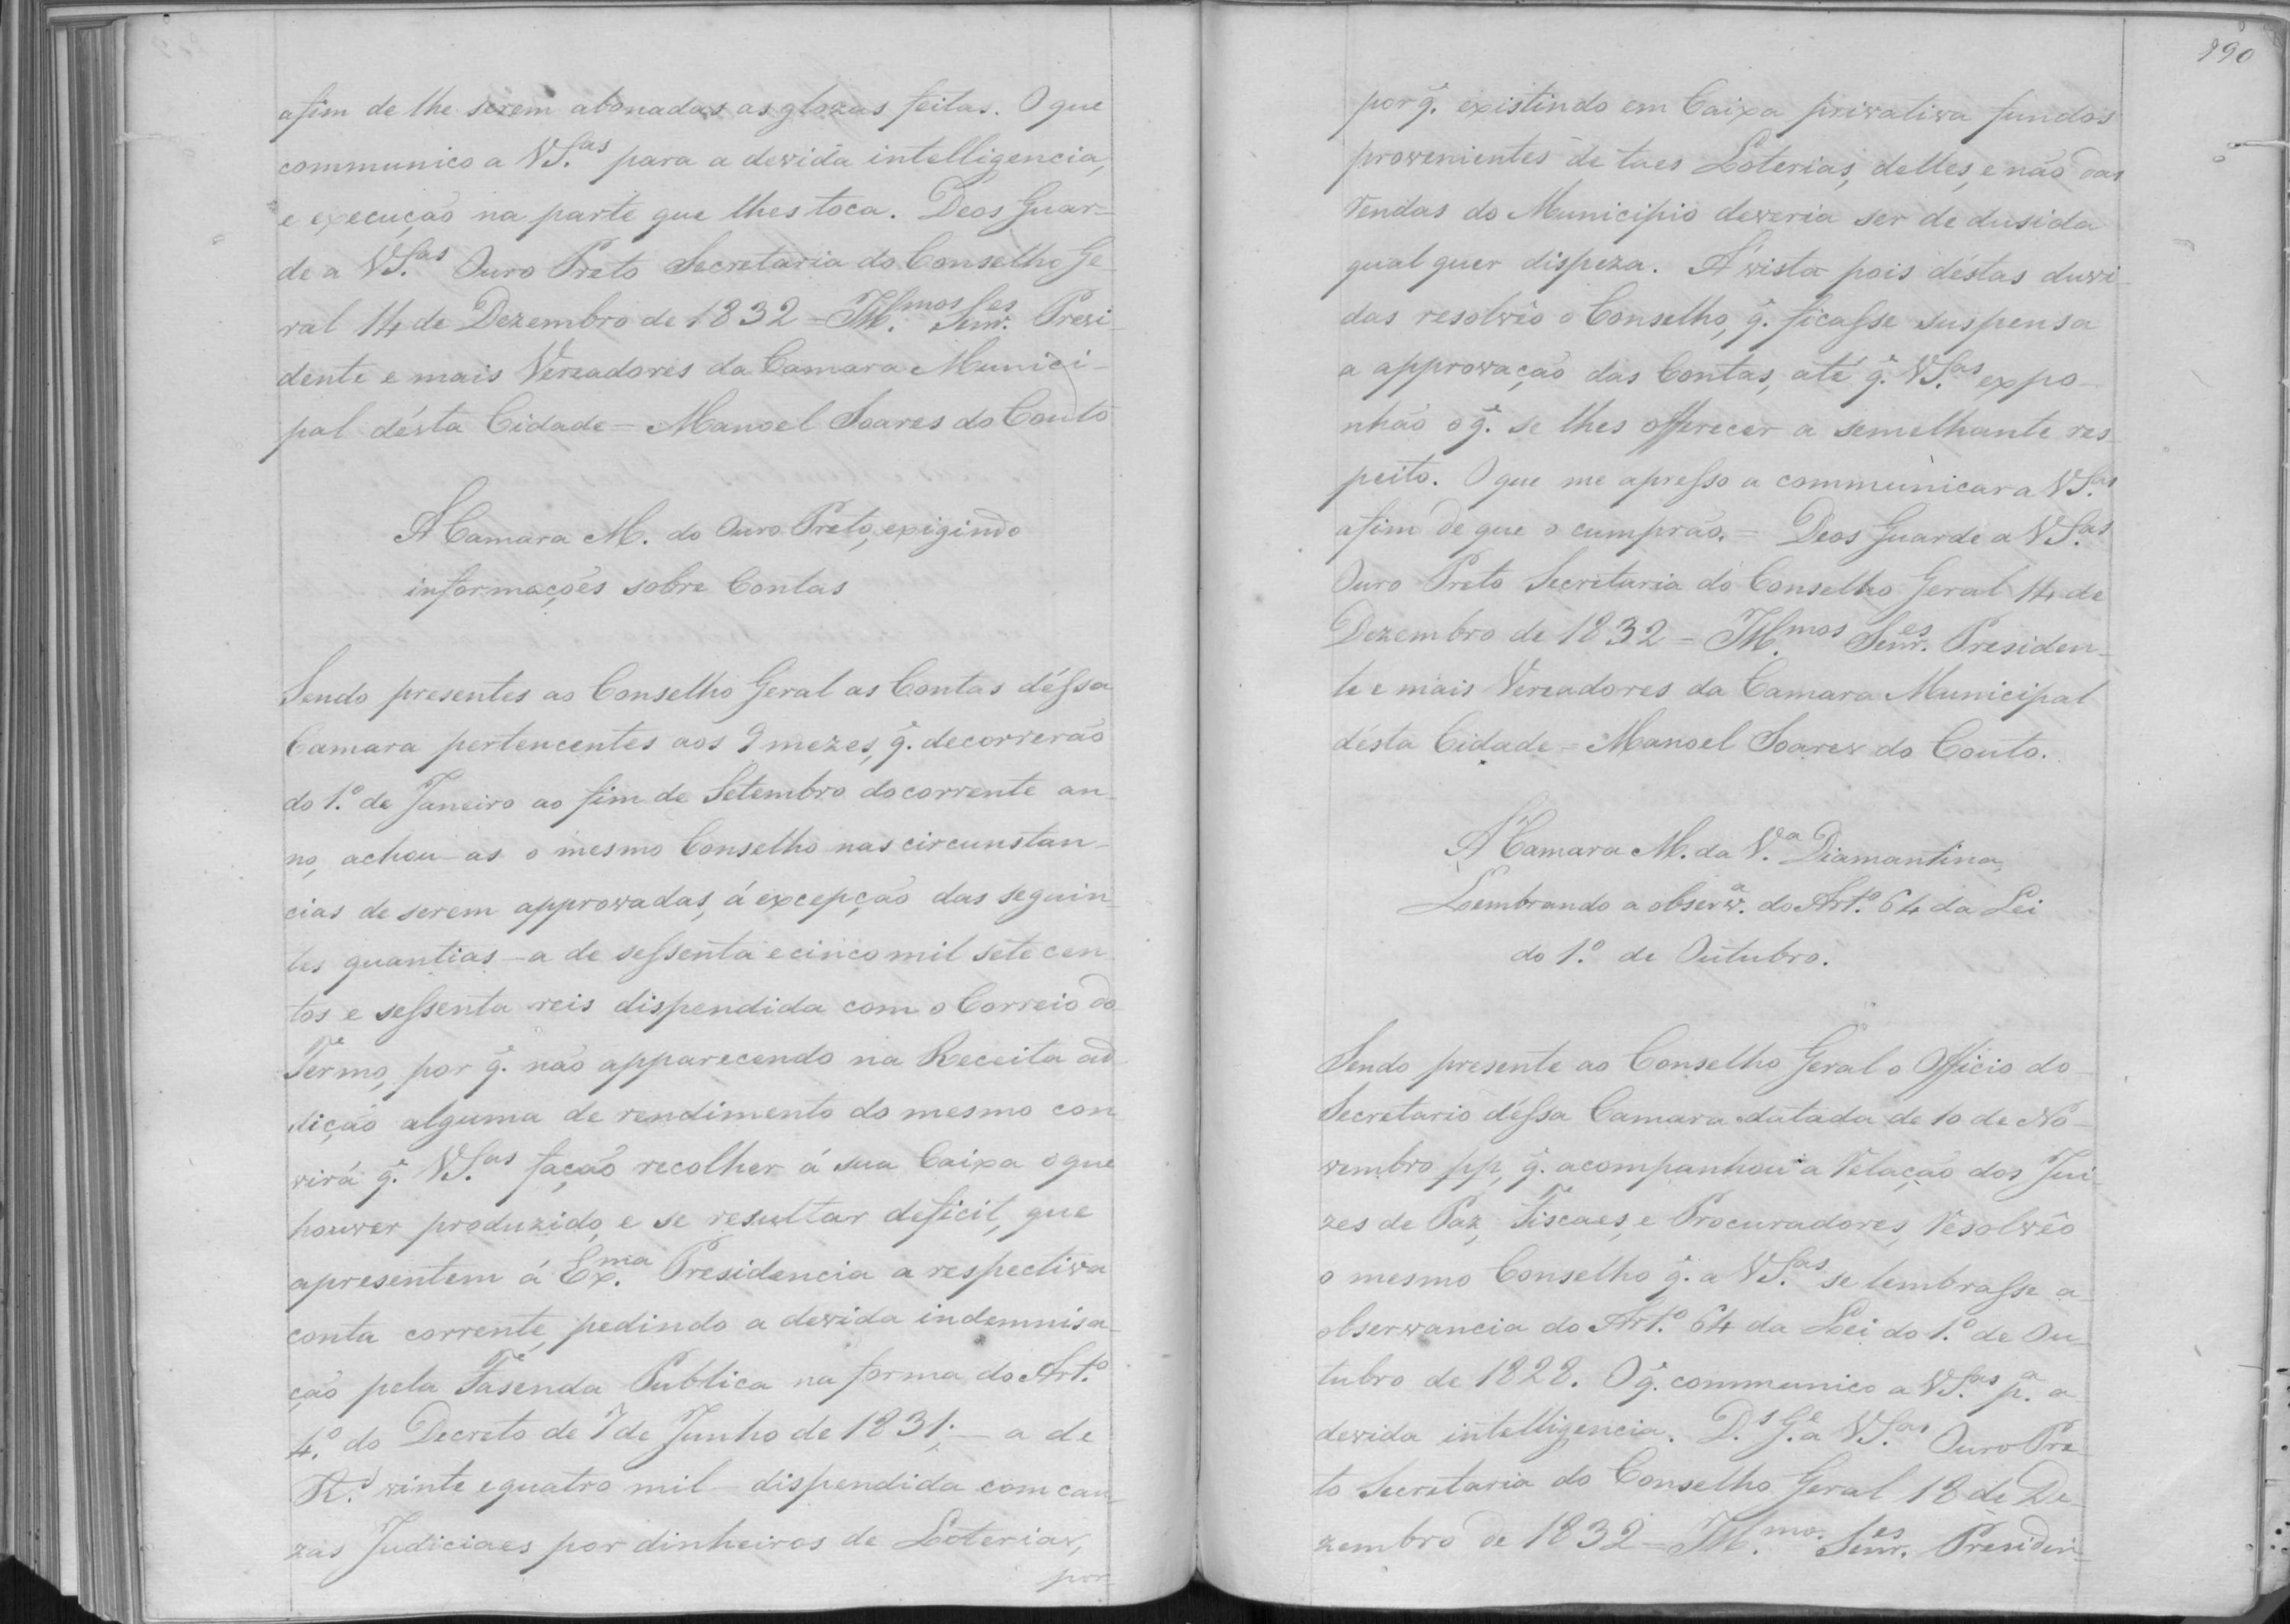 afim de lhe serem abonadas as glozas feitas. O que
communico a VS.as para a devida intelligencia,
e execução na parte que lhes toca. Deos Guar=
de a VS.as Ouro Preto Secretaria do Conselho Ge-
ral 14 de Dezembro de 1832 = Ill.mos Senr.es Prezi-
dente e mais Vereadores da Camara Munici-
pal désta Cidade = Manoel Soares do Couto
A Camara M. do Ouro Preto, exigindo
informações sobre Contas
Sendo presentes ao Conselho Geral as Contas déssa
Camara pertencentes aos 9 mezes, q̃. decorrerão
do 1.º de Janeiro ao fim de Setembro do corrente an-
no, achou-as o mesmo Conselho nas circunstan-
cias de serem approvadas, á excepção das seguin-
tes quantias - a de sessenta e cinco mil sete cen-
tos e sessenta reis dispendida com o Correio do
Termo, por q̃. não apparecendo na Receita ad-
dição alguma de rendimento do mesmo con-
virá q̃. VS.as fação recolher á sua Caixa o que
houver produzido, e se resultar deficit, que
apresentem á Ex.ma Presidencia a respectiva
conta corrente, pedindo a devida indemnisa-
ção pela Fasenda Publica na forma do Art.º
4.º do Decreto de 7 de Junho de 1831; - a de
R.s vinte e quatro mil - dispendida com cau-
zas Judiciaes por dinheiros de Loterias,
por
190
por q̃. existindo em Caixa privativa fundos
provenientes de taes Loterias, delles, e não das
Rendas do Municipio deveria ser dedusida
qual quer dispeza. Á vista pois déstas duvi-
das resolvêo o Conselho, q̃. ficasse suspensa
a approvação das Contas, até q̃. VS.as expo-
nhão o q̃. se lhes offerecer a semelhante res-
peito. O que me apresso a communicar a VS.as
afim de que o cumprão. = Deos Guarde a VS.as
Ouro Preto Secretaria do Conselho Geral 14 de
Dezembro de 1832 = Ill.mos Senr.es Presiden-
te e mais Vereadores da Camara Municipal
désta Cidade = Manoel Soares do Couto.
Á Camara M. da V.a Diamantina,
Lembrando a observ.a do Art.º 64 da Lei
do 1.º de Outubro.
Sendo presente ao Conselho Geral o Officio do
Secretario déssa Camara datada de 10 de No-
vembro pp, q̃. acompanhou a Relação dos Jui-
zes de Paz, Fiscaes, e Procuradores, Resolvêo
o mesmo Conselho q̃. a VS.as se lembrasse a
observancia do Art.º 64 da Lei do 1.º de Ou-
tubro de 1828. O q̃. communico a VS.as p.a a
devida intelligencia. D.s G.e a VS.as Ouro Pre-
to Secretaria do Conselho Geral 18 de De-
zembro de 1832 = Ill.mos Senr.es Presiden-